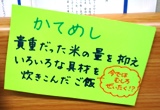 かてめし
貴重だった米の量を抑え
いろいろな具材を
炊きこんだご飯
今ではむしろ
ぜいたく!?